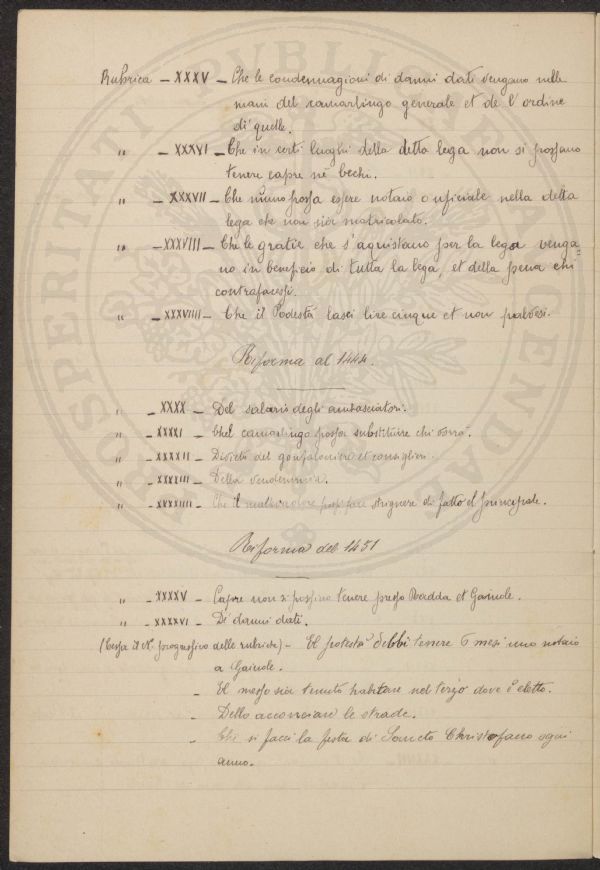 Rubrica - XXXV - Che le condennagioni di danni dati vengano nelle
mani del camarlingo generale et de l'ordine
di quelle.
" - XXXVI - Che in certi luoghi della detta lega non si possano
tenere capre nè bechi.
" - XXXVII - Che niuno possa essere notaio o uficiale nella detta
lega che non sia matricolato.
" - XXXVIII - Che le gratie che s'aquistano per la lega venga=
no in beneficio di tutta la lega, et della pena chi
contrafacessi.
" - XXXVIIII - Che il Podestà lasci lire cinque et non palvesi.
Riforma al 1444.
" - XXXX - Del salario degli ambasciatori.
" - XXXXI - Chel camarlingo possa substituire chi vorrà.
" - XXXXII - Divieto del gonfaloniere et consiglieri.
" - XXXXIII - Della vendemmia.
" - XXXXIIII - Che il mallevadore possi fare strignere di fatto el principale.
Riforma del 1451
" - XXXXV - Capre non si possino tenere presso Radda et Gaiuole.
" - XXXXVI - Di danni dati.
(Cessa il N. progressivo delle rubriche) - El potestà debbi tenere 6 mesi uno notaio
a Gaiuole.
- El messo sia tenuto habitare nel terzo dove è eletto.
- Dello acconciare le strade.
- Che si facci la festa di Sancto Christofano ogni
anno.
PROSPERITATI PUBLICAE AUGENDAE